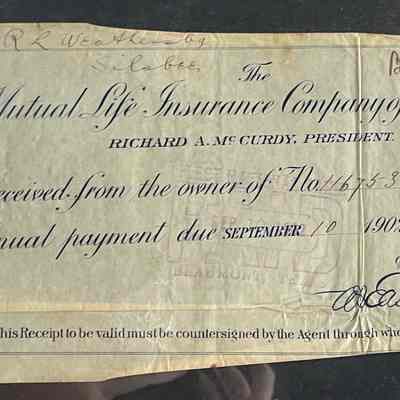 R L Weathersby
Silsbee
The
Mutual Life Insurance Company of
RICHARD A. McCURDY, PRESIDENT.
eceived from the owner of No. 116753
nnual payment due SEPTEMBER 10 190
his Receipt to be valid must be countersigned by the Agent through who